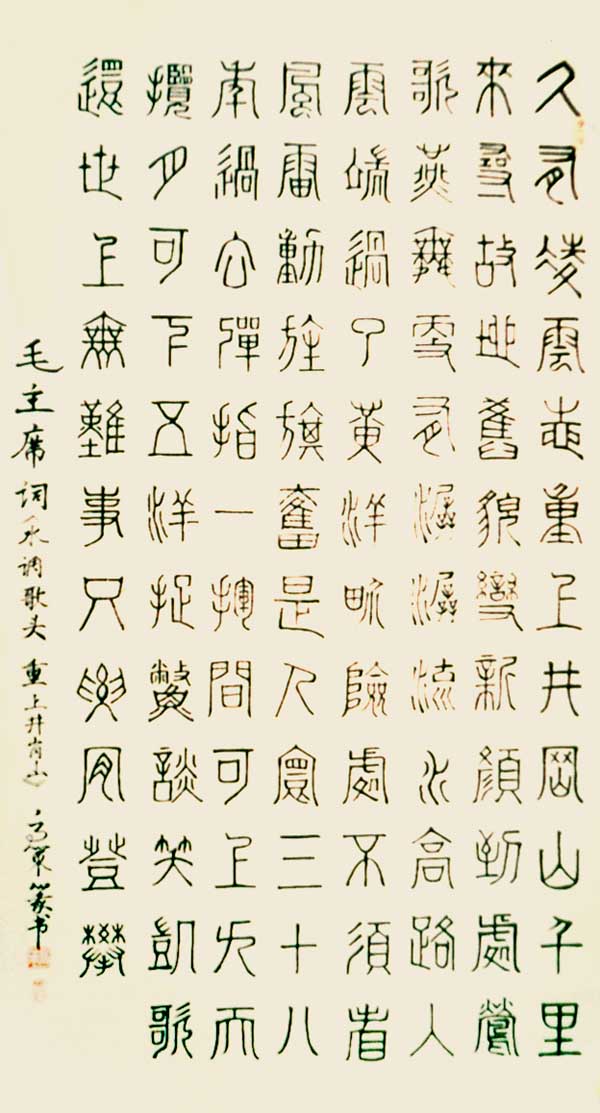 久有凌雲志重上井岡山千里
來尋故地舊貌變新顏到處鶯
歌燕舞更有潺潺流水高路入
雲端過了黃洋界險處不須看
風雷動旌旗奮是人寰三十八
年過去彈指一揮間可上九天
攬月可下五洋捉鱉談笑凱歌
還世上無難事只要肯登攀
毛主席词《水调歌头 重上井岗山》 篆书